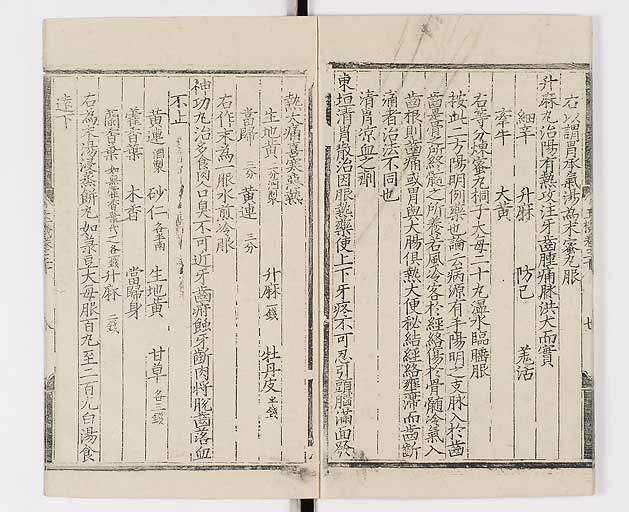 右以謂胃承氣湯為末蜜丸服
升麻丸治陽有熱攻注牙齒腫痛脉洪大而實
細辛 升麻 防己 羗活
牽牛 大黃
右等分煉蜜丸桐子大每二十丸溫水臨臥服
按此二方陽明例藥也論云病源有手陽明之支脉入於齒
齒是骨之所終髓之所養若風冷客於經絡傷於骨髓冷氣入
齒根則齒痛或胃與大腸俱熱大便秘結經絡壅滯而齒齗
痛者治法不同也
清胃凉血之劑
東垣清胃散治因服熱藥使上下牙疼不可忍引頭腦滿面發
熱大痛喜寒惡熱
生地黃 三分酒製 升麻 一錢 牡丹皮 半錢
當歸 三分 黃連 三分
右作末為一服水煎冷服
神功丸治多食肉口臭不可近牙齒疳蝕牙齗肉將脫齒落血
不止
黃連 酒製 砂仁 各半兩 生地黃 甘草 各三錢
藿香葉 木香 當歸身
蘭香葉 如無藿香葉代之各錢 升麻 二錢
右為末湯浸蒸餅丸如菉豆大每服百丸至二百丸白湯食
遠下